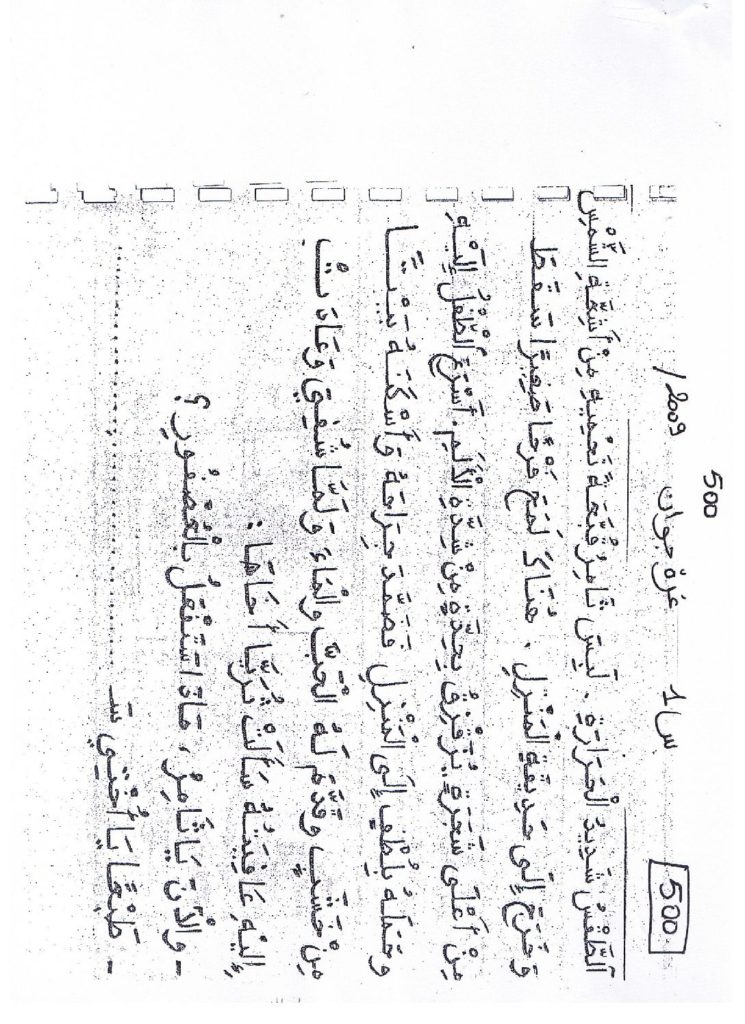 500
500 س1 غرة جوان 2009/
الطَّقْسُ شَدِيدُ الْحَرَارَةِ. لَبِسَ ثَامِرُ قُبَّعَةً تَحْمِيهِ مِنْ أَشِعَّةِ الشَّمْسِ
وَخَرَجَ إِلَى حَدِيقَةِ الْمَنْزِلِ. هُنَاكَ لَمَحَ فَرْخًا صَغِيرًا سَقَطَ
مِنْ أَعْلَى شَجَرَةٍ يُزَقْزِقُ بِحِدَّةٍ مِنْ شِدَّةِ الْأَلَمِ. أَسْرَعَ الطِّفْلُ إِلَيْهِ
وَحَمَلَهُ بِلُطْفٍ إِلَى الْمَنْزِلِ فَضَمَّدَ جِرَاحَهُ وَأَسْكَنَهُ بَيْتًا
مِنْ خَشَبٍ وَقَدَّمَ لَهُ الْحَبَّ وَالْمَاءَ وَلَمَّا شُفِيَ وَعَادَتْ
إِلَيْهِ عَافِيَتُهُ سَأَلَتْ ثُرَيَّا أَخَاهَا :
- وَالْآنَ يَا ثَامِرُ، مَاذَا سَتَفْعَلُ بِالْعُصْفُورِ ؟
- طَبْعًا يَا أُخْتِي سَـ ....................